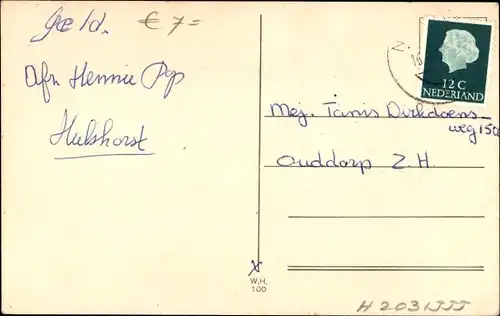 Ge ld. € 7=
Afz Hennie Pop
Hulshorst
12 C
NEDERLAND
Mej. Tanis Dirkdoens-
weg 15a
Ouddorp Z.H.
W.H.
100
H 2031JJJ